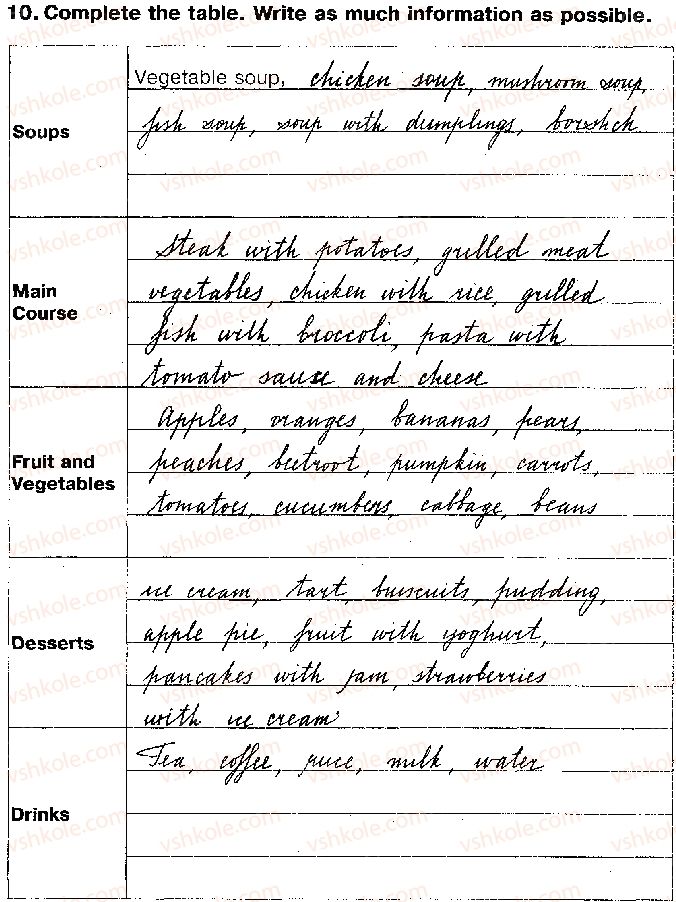 10. Complete the table. Write as much information as possible.
Soups
Vegetable soup, chicken soup, mushroom soup,
fish soup, soup with dumplings, borshch
Main
Course
Steak with potatoes, grilled meat
vegetables, chicken with rice, grilled
fish with broccoli, pasta with
tomato sause and cheese
Fruit and
Vegetables
Apples, oranges, bananas, pears,
peaches, beetroot, pumpkin, carrots,
tomatoes, cucumbers, cabbage, beans
Desserts
ice cream, tart, buiscuits, pudding,
apple pie, fruit with yoghurt,
pancakes with jam, strawberries
with ice cream
Drinks
Tea, coffee, juice, milk, water
vshkole.com